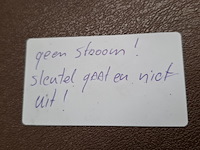 geen stooom!
sleutel gaat en niet
uit!